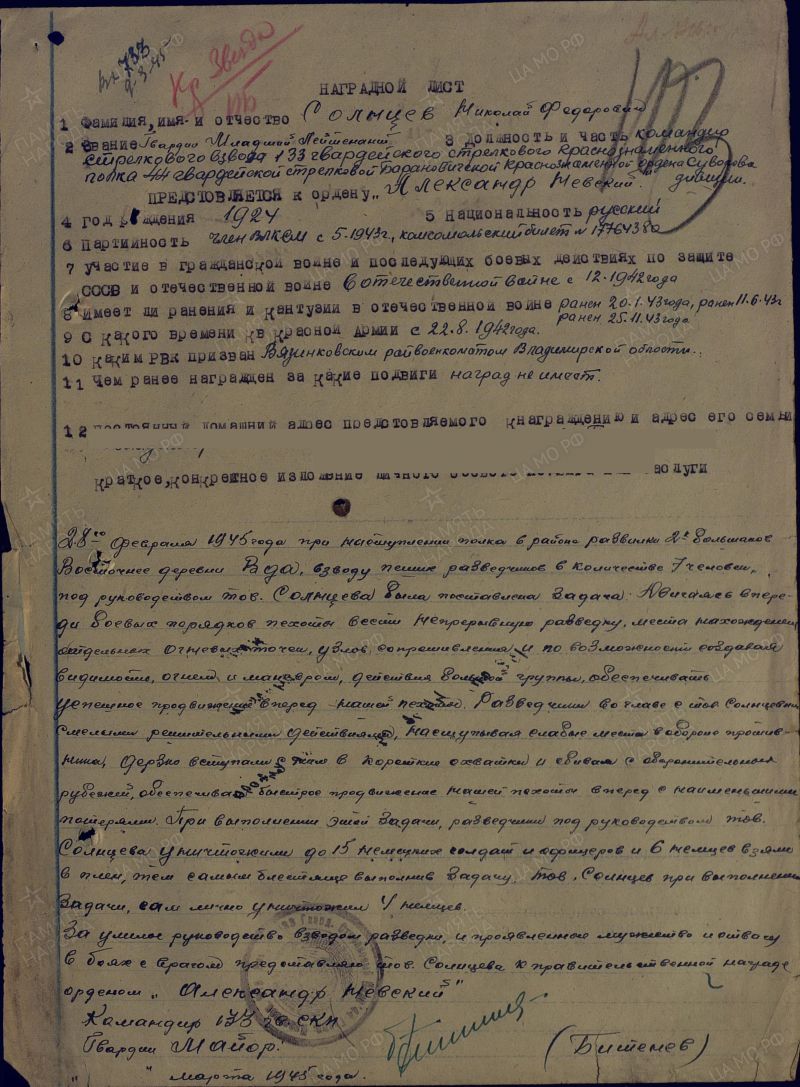 вх 733
9.3.45
Кр Звезда
НАГРАДНОЙ ЛИСТ
1 Фамилия, имя и отчество Солнцев Николай Федорович
2 Звание Гвардии Младший Лейтенант 3 Должность и часть командир
стрелкового взвода 133 гвардейского стрелкового краснознаменного
полка 44 гвардейской стрелковой Барановичской Краснознаменной ордена Суворова дивизии.
ПРЕДСТОВЛЯЕТСЯ К ордену „Александр Невский"
4 год рождения 1924 5 Национальность русский
6 Партийность член ВЛКСМ с 5.1943г., комсомольский билет №
7 участие в гражданской войне и последующих боевых действиях по защите
СССР и отечественной войне в отечественной войне с 12.1942 года
8 Имеет ли ранения и кантузии в отечественной войне ранен 20.1.43 года, ранен 11.6.43г
ранен 25.11.43 года
9 С какого времени в красной Армии с 22.8.1942 года.
10 каким РВК призван Вязниковским райвоенкоматом Владимирской области.
11 Чем ранее награжден за какие подвиги наград не имеет.
12 постоянный домашний адрес предстовляемого к награждению и адрес его семьи
краткое, конкретное изложение личного боевого заслуги
28го февраля 1945 года при наступлении полка в районе развилки 2х большаков
Восточнее деревни Вда, взводу пеших разведчиков в количестве 7 человек,
под руководством тов. Солнцева была поставлена задача. Двигаясь впере-
ди боевых порядков пехоты вести непрерывную разведку, места нахождения
отдельных огневых точек, узлов сопротивления и по возможности создавая
видимость, огнем и маневром, действия большой группы, обеспечивать
успешное продвижение вперед нашей пехоты. Разведчики во главе с тов Солнцевым
смелыми решительными действиями, нащупывая слабые места в обороне против-
ника, дерзко вступали с ним в короткие схватки и сбивали с оборонительных
рубежей, обеспечивая быстрое продвижение нашей пехоты вперед с наименьшими
потерями. При выполнении этой задачи, разведчики под руководством тов.
Солнцева уничтожили до 15 немецких солдат и офицеров и 6 немцев взяли
в плен, тем самым блестяще выполнив задачу. тов. Солнцев при выполнении
задачи, сам лично уничтожил 4 немцев.
За умелое руководство взводом разведки, и проявленное мужество и отвагу
в боях с врагом предоставляю тов. Солнцева к правительственной награде
орденом „Александр Невский"
Командир 133 гв. СКП
Гвардии Майор. (Битенев)
" " марта 1945 года.